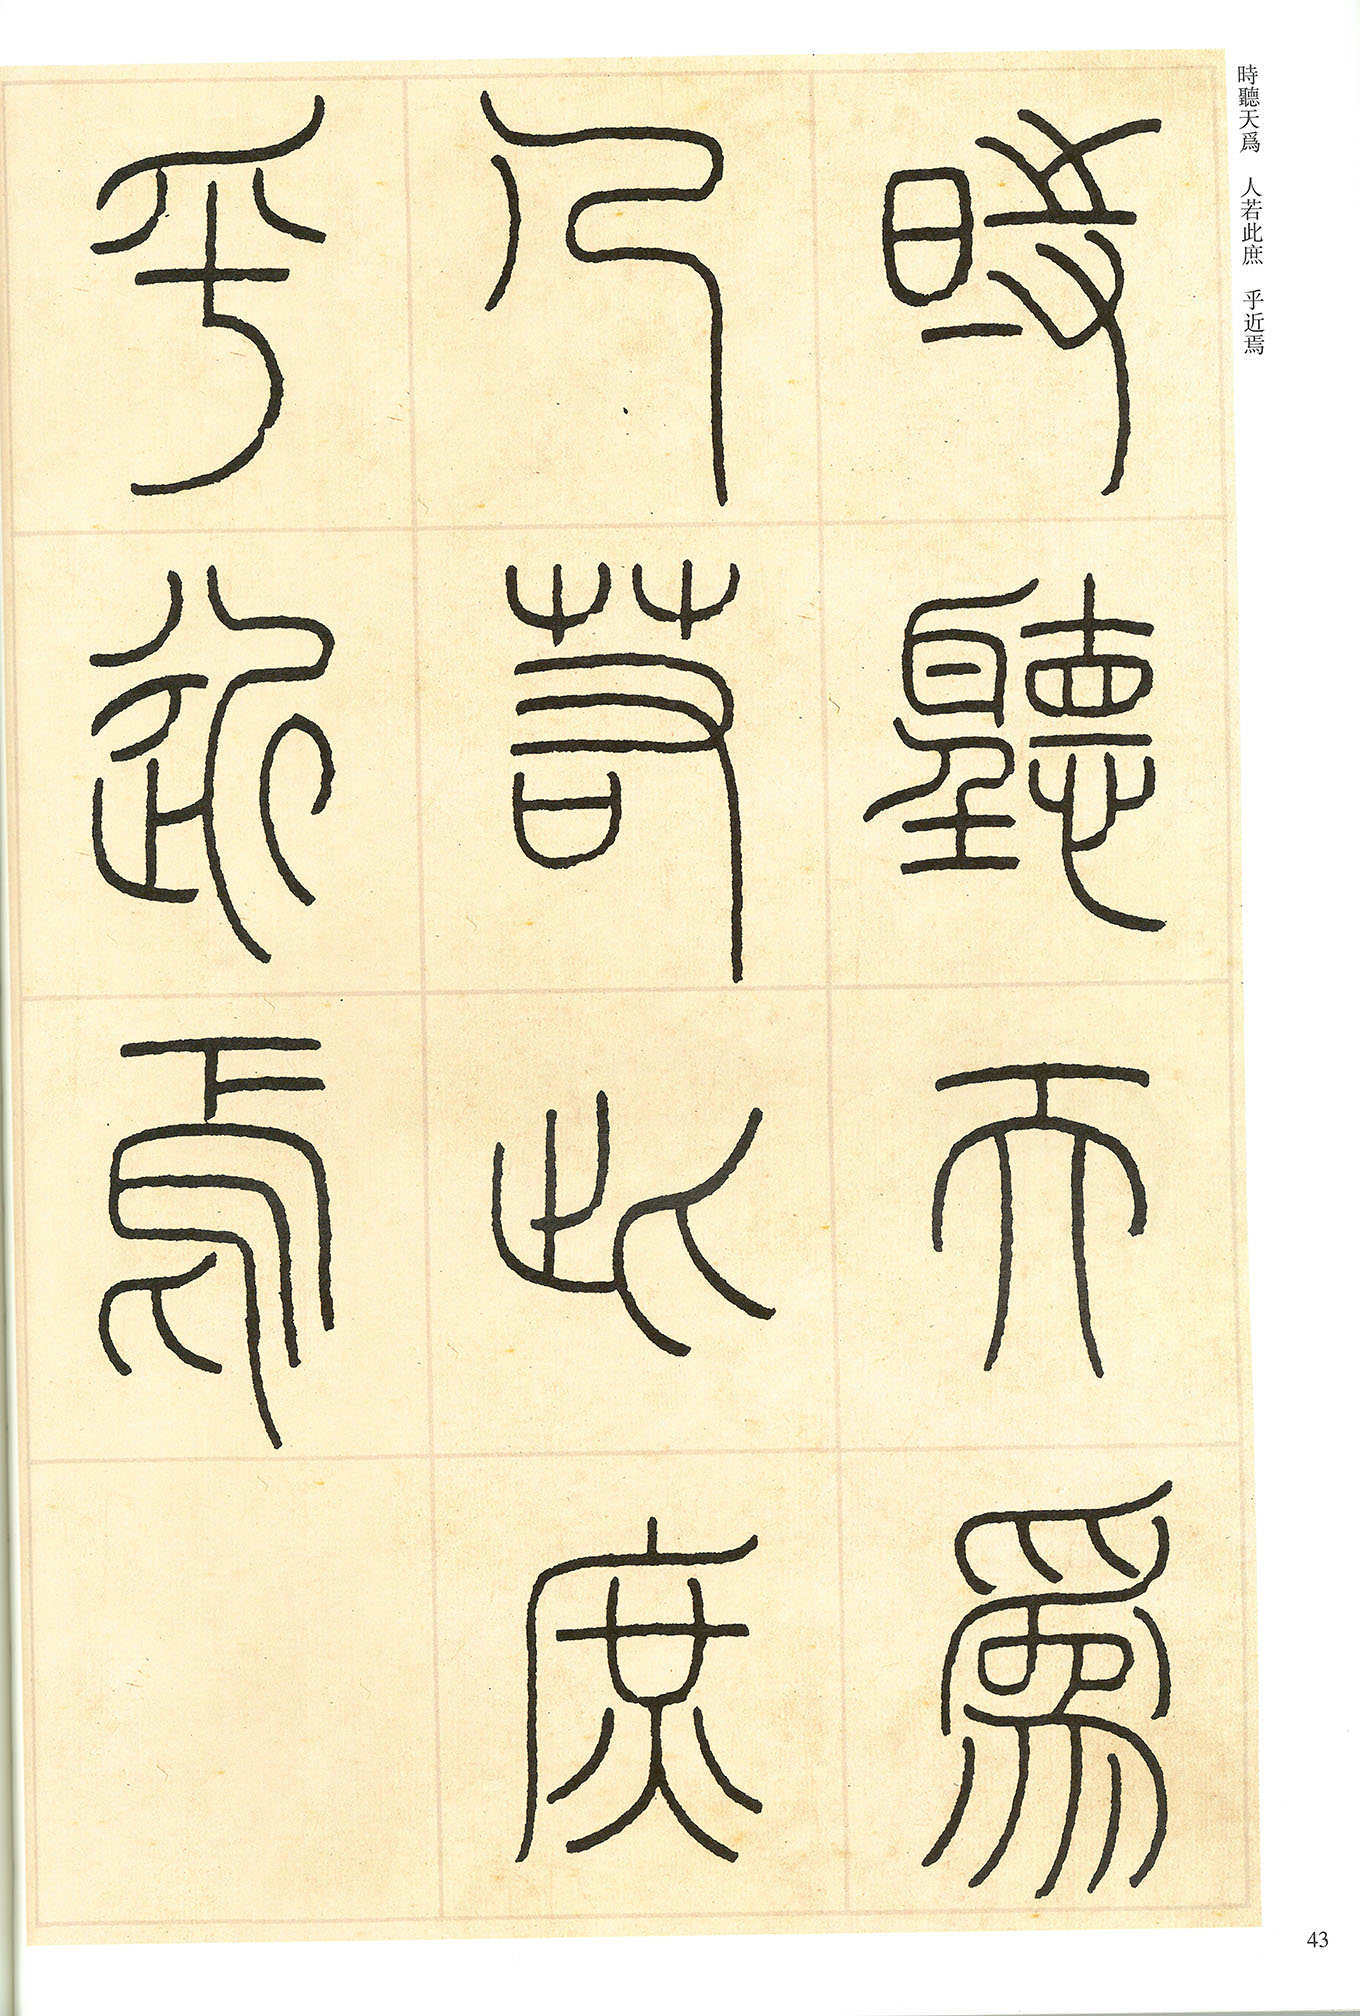 時聽天爲　人若此庶　乎近焉
時聽天爲
人若此庶
乎近焉
43